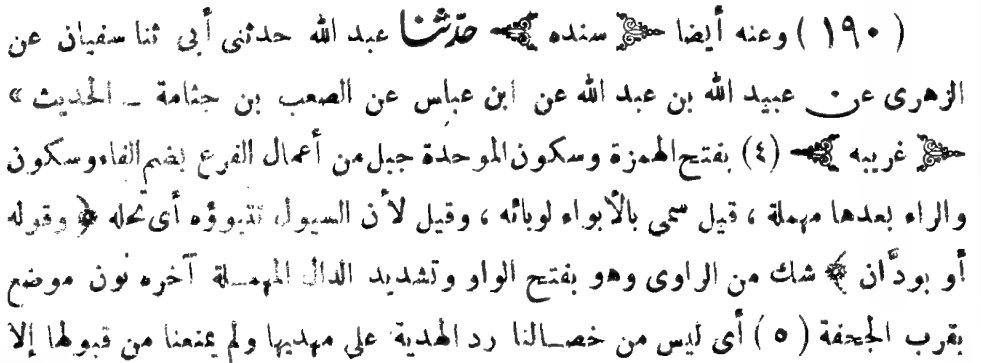 ( ١٩٠ ) وعنه أيضا ﴿ سنده ﴾ حدّثنا عبد الله حدثنى أبى ثنا سفيان عن
الزهرى عن عبيد الله بن عبد الله عن ابن عباس عن الصعب بن جثامة ــ الحديث »
﴿ غريبه ﴾ (٤) بفتح الهمزة وسكون الموحدة جبل من أعمال الفرع بضم الفاء وسكون
والراء بعدها مهملة ، قيل سمى بالأبواء لوبائه ، وقيل لأن السيول تتبوؤه أى تحله ﴿ وقوله
أو بودَّان ﴾ شك من الراوى وهو بفتح الواو وتشديد الدال المهمــلة آخره نون موضع
بقرب الجحفة ( ٥ ) أى ليس من خصــالنا رد الهدية على مهديها ولم يمنعنا من قبولها إلا